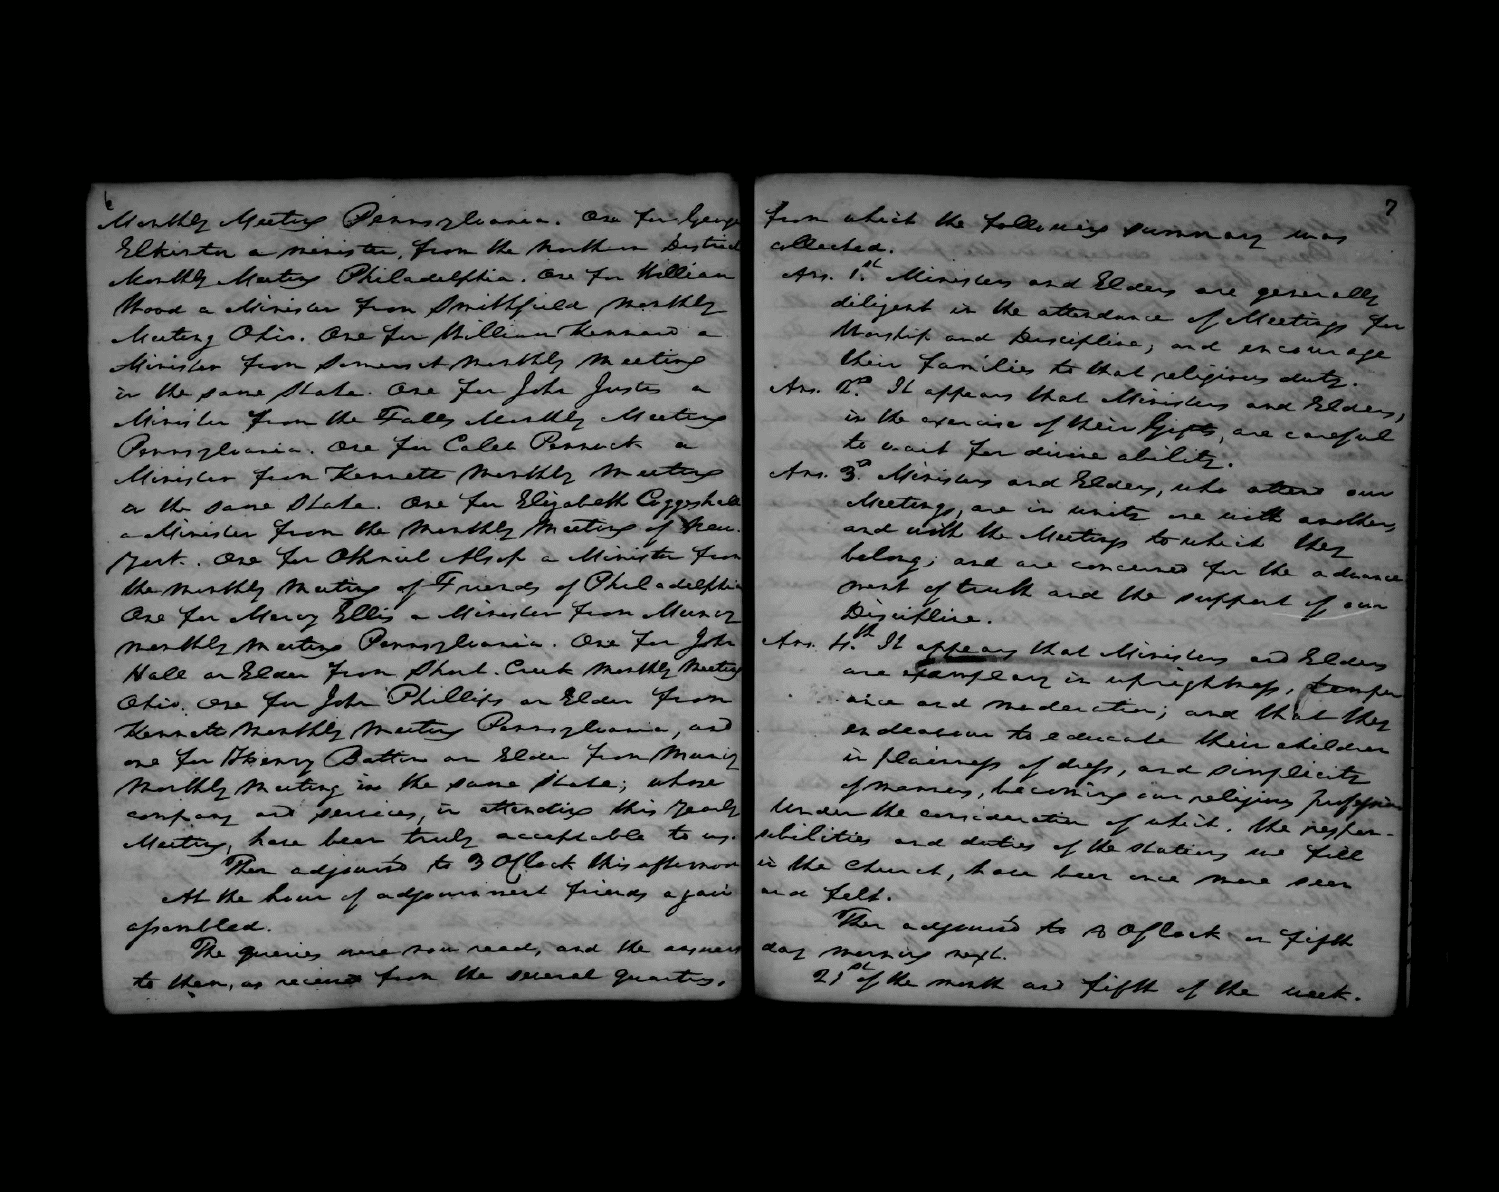 6
Monthly Meeting Pennsylvania. One for George
Elkinton a minister, from the Northern District
Monthly Meeting Philadelphia. One for William
Wood a Minister from Smithfield Monthly
Meeting Ohio. One for William Kennard a
Minister from Somerset Monthly Meeting
in the same State. One for John Justis a
Minister from the Falls Monthly Meeting
Pennsylvania. One for Caleb Pennock a
Minister from Kennett Monthly Meeting
in the same State. One for Elizabeth Coggeshall
a Minister from the Monthly Meeting of New-
York. One for Othniel Alsop a Minister from
the Monthly Meeting of Friends of Philadelphia
One for Mercy Ellis a Minister from Muncy
Monthly Meeting Pennsylvania. One for John
Hall an Elder from Short-Creek Monthly Meeting
Ohio. One for John Phillips an Elder from
Kennett Monthly Meeting Pennsylvania, and
one for Henry Battin an Elder from Muncy
Monthly Meeting in the same State; whose
company and services, in attending this Yearly
Meeting, have been truly acceptable to us.
Then adjourned to 3 OClock this afternoon
At the hour of adjournment friends again
assembled.
The queries were now read, and the answers
to them, as received from the several quarters,
7
from which the following summary was
collected.
Ans. 1.st Ministers and Elders are generally
diligent in the attendance of Meetings for
Worship and Discipline; and encourage
their families to that religious duty.
Ans. 2.d It appears that Ministers and Elders,
in the exercise of their Gifts, are careful
to wait for divine ability.
Ans. 3.d Ministers and Elders, who attend our
Meetings, are in unity one with another,
and with the Meetings to which they
belong; and are concerned for the advance-
ment of truth and the support of our
Discipline.
Ans. 4.th It appears that Ministers and Elders
are exemplary in uprightness, temper
ance and moderation; and that they
endeavour to educate their children
in plainness of dress, and simplicity
of manners, becoming our religious profession
Under the consideration of which, the respon-
sibilities and duties of the stations we fill
in the Church, have been once more seen
and felt.
Then adjourned to 8 OClock on fifth
day morning next.
21st of the month and fifth of the week.